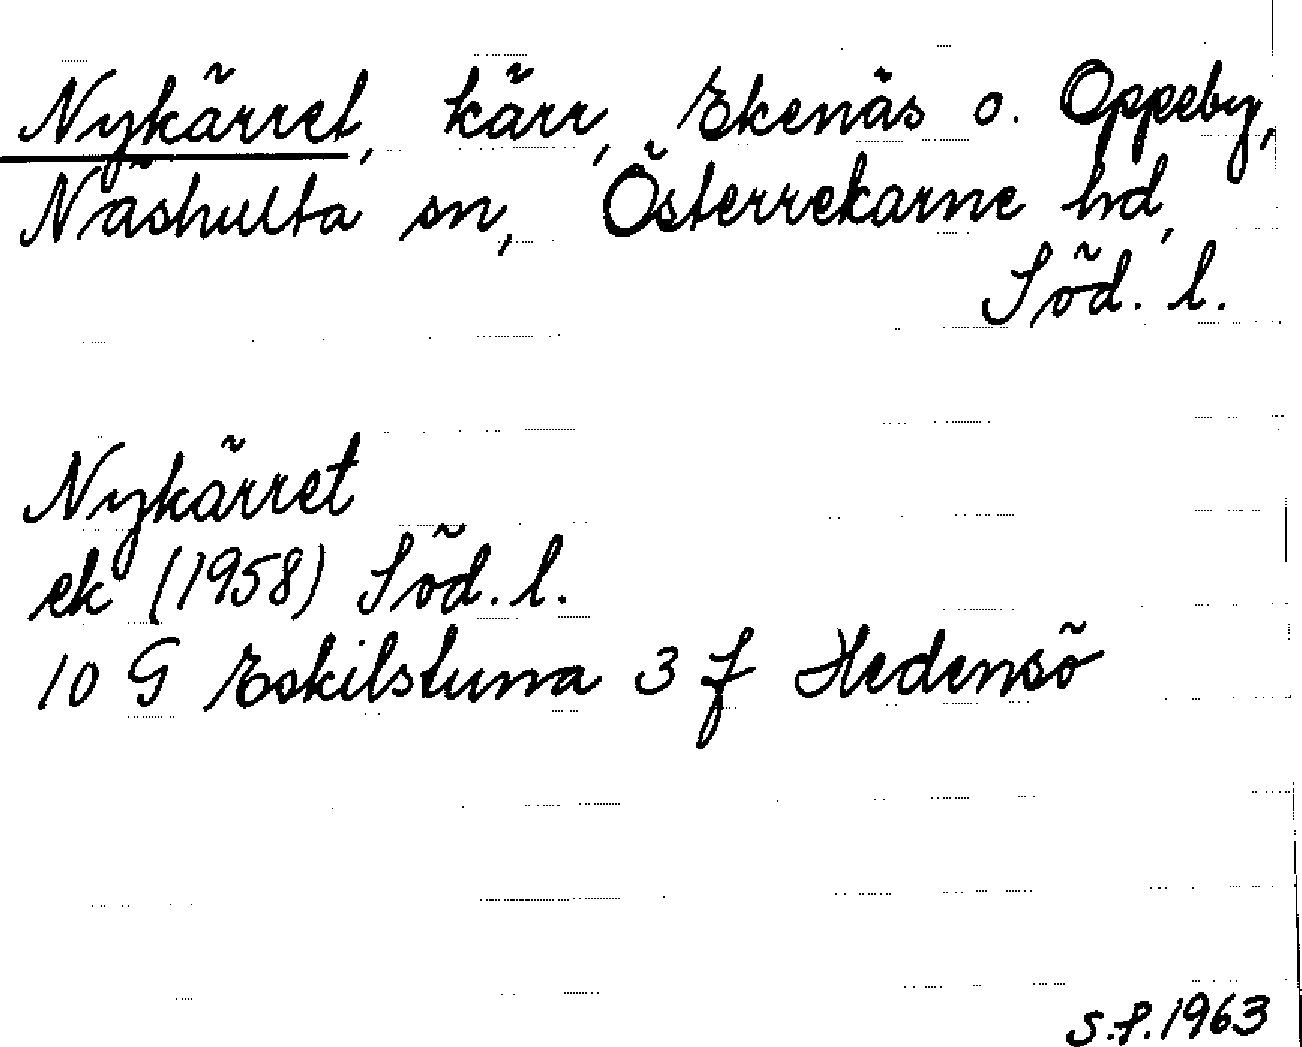 Nykärret, kärr, Ekenäs o. Oppeby,
Näshulta sn, Österrekarne hd,
Söd. l.
Nykärret
ek (1958) Söd. l.
10 G Eskilstuna 3 f Hedensö
S.f. 1963